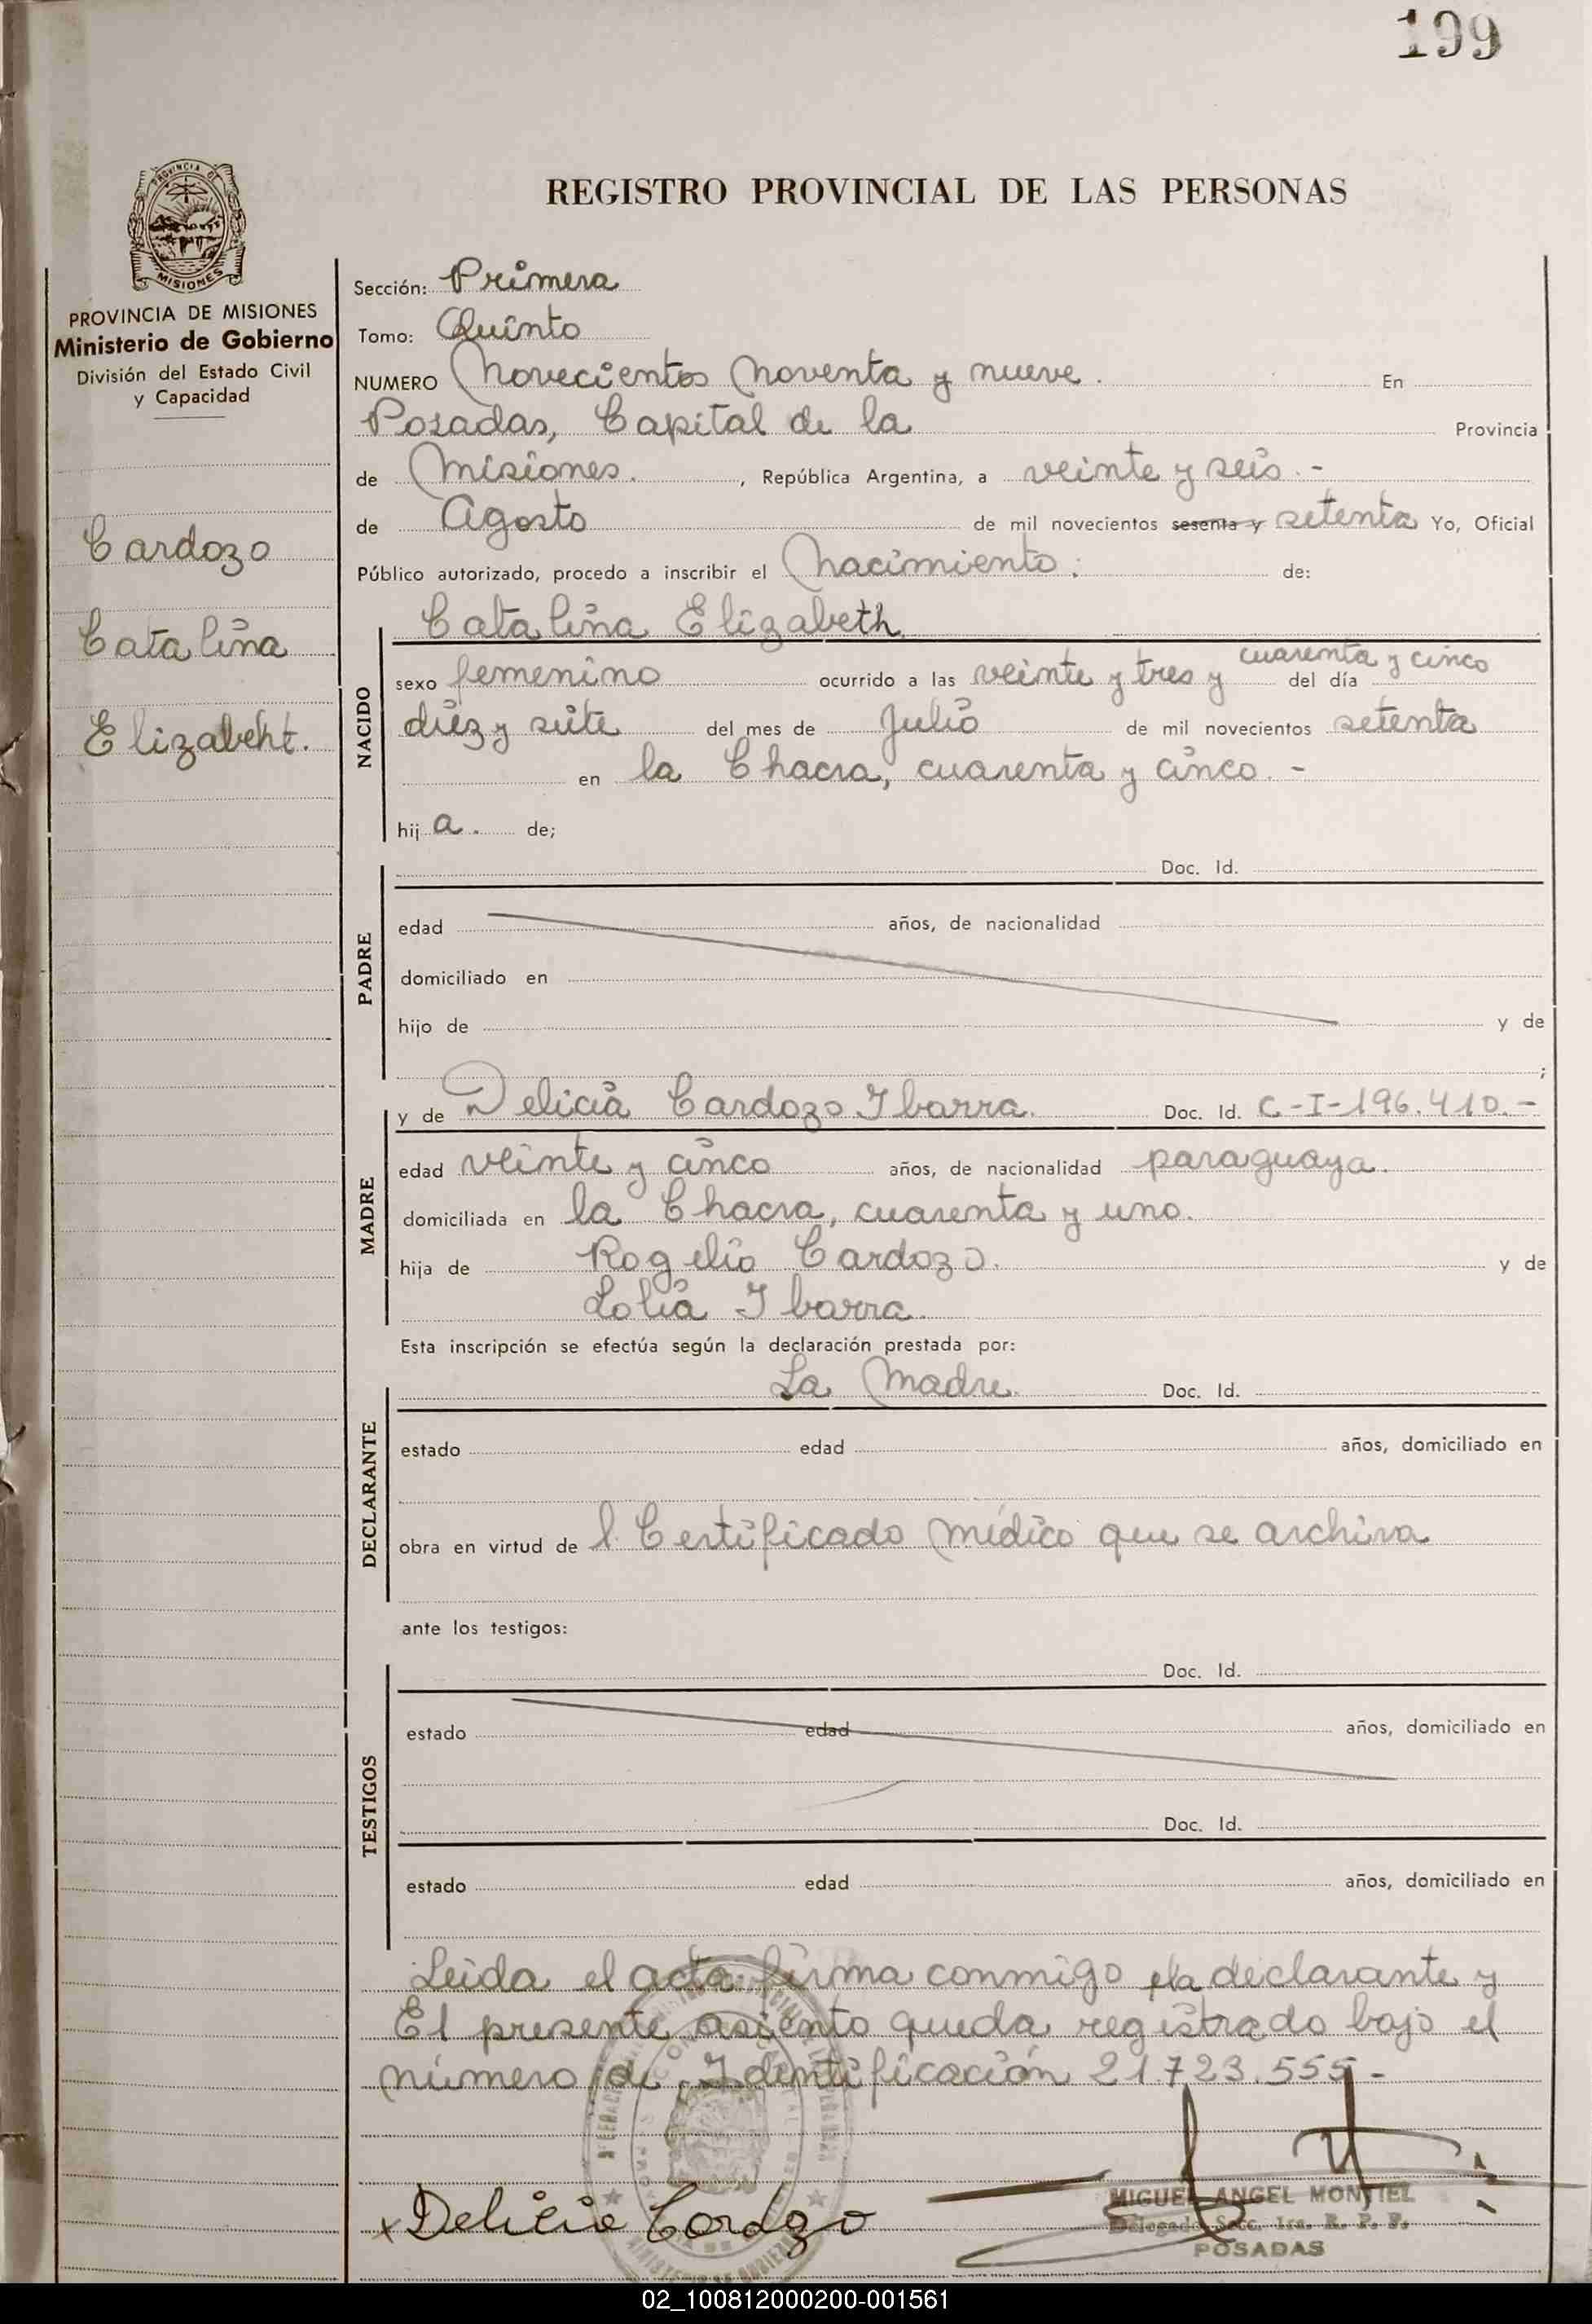 199
PROVINCIA DE MISIONES
PROVINCIA DE MISIONES
Ministerio de Gobierno
División del Estado Civil
y Capacidad
Cardozo
Catalina
Elizabeht.
REGISTRO PROVINCIAL DE LAS PERSONAS
Sección: Primera
Tomo: Quinto
NUMERO Novecientos Noventa y nueve. En
Posadas, Capital de la Provincia
de Misiones. , República Argentina, a veinte y seis.-
de Agosto de mil novecientos sesenta y setenta Yo, Oficial
Público autorizado, procedo a inscribir el Nacimiento: de:
Catalina Elizabeth
NACIDO
cuarenta y cinco
sexo femenino ocurrido a las veinte y tres y del día
diez y siete del mes de Julio de mil novecientos setenta
en la Chacra, cuarenta y cinco.-
hij a. de;
Doc. Id.
PADRE
edad años, de nacionalidad
domiciliado en
hijo de y de
;
y de Delicia Cardozo Ibarra. Doc. Id. C-I-196.410.-
MADRE
edad veinte y cinco años, de nacionalidad paraguaya.
domiciliada en la Chacra, cuarenta y uno.
hija de Rogelio Cardozo. y de
Lolia Ibarra.
Esta inscripción se efectúa según la declaración prestada por:
La Madre. Doc. Id.
DECLARANTE
estado edad años, domiciliado en
obra en virtud de l Certificado médico que se archiva
ante los testigos:
Doc. Id.
TESTIGOS
estado edad años, domiciliado en
Doc. Id.
estado edad años, domiciliado en
Leida el acta firma conmigo la declarante y
El presente asiento queda registrado bajo el
número de Identificación 21.723.555-
x Delicia Cardozo
MIGUEL ANGEL MONTIEL
Delegado Secc. 1ra. R. P. P.
POSADAS
02_100812000200-001561